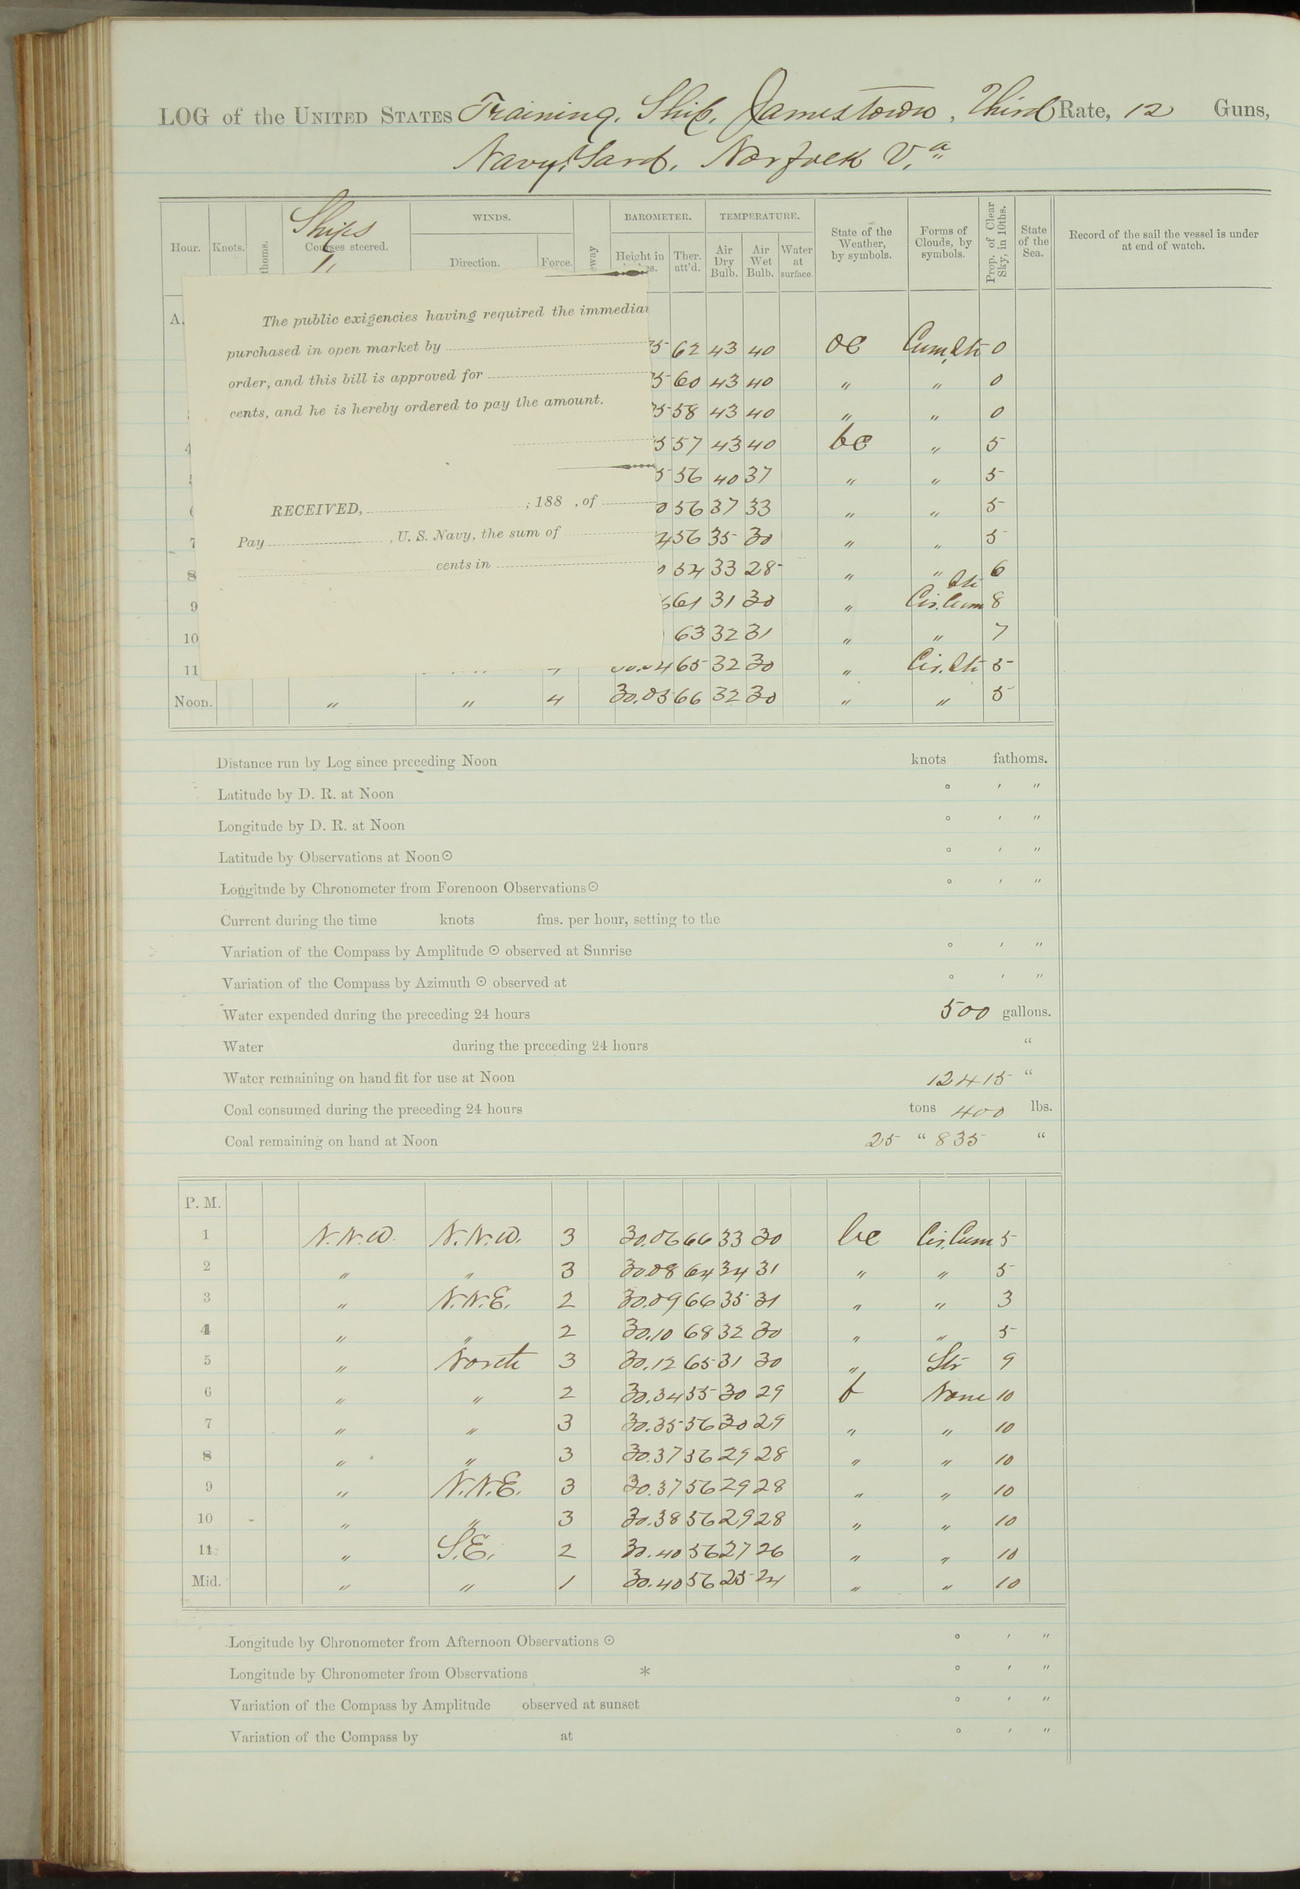 LOG of the UNITED STATES Training Ship Jamestown, Third Rate, 12 Guns,
Navy Yard, Norfolk Va
Hour. Knots. thoms. Ships Courses steered. WINDS. Direction. Force. eway BAROMETER. Height in Ther. att'd. TEMPERATURE. Air Dry Bulb. Air Wet Bulb. Water at surface. State of the Weather, by symbols. Forms of Clouds, by symbols. Prop. of Clear Sky, in 10ths. State of the Sea. Record of the sail the vessel is under at end of watch.
A.
The public exigencies having required the immedia
purchased in open market by
order, and this bill is approved for
cents, and he is hereby ordered to pay the amount.
RECEIVED, , 188 , of
Pay , U. S. Navy, the sum of
cents in
5 62 43 40 oc Cum. Str 0
5 60 43 40 " " 0
5 58 43 40 " " 0
4 5 57 43 40 bc " 5
5 56 40 37 " " 5
0 56 37 33 " " 5
7 4 56 35 30 " " 5
8 0 54 33 28 " " 6
9 61 31 30 " Cir. Cum Str 8
10 63 32 31 " " 7
11 30.04 65 32 30 " Cir. Str 5
Noon. " " 4 30.05 66 32 30 " " 5
Distance run by Log since preceding Noon knots fathoms.
Latitude by D. R. at Noon ° ′ ″
Longitude by D. R. at Noon ° ′ ″
Latitude by Observations at Noon ☉ ° ′ ″
Longitude by Chronometer from Forenoon Observations ☉ ° ′ ″
Current during the time knots fms. per hour, setting to the
Variation of the Compass by Amplitude ☉ observed at Sunrise ° ′ ″
Variation of the Compass by Azimuth ☉ observed at ° ′ ″
Water expended during the preceding 24 hours 500 gallons.
Water during the preceding 24 hours "
Water remaining on hand fit for use at Noon 12415 "
Coal consumed during the preceding 24 hours tons 400 lbs.
Coal remaining on hand at Noon 25 " 835 "
P. M.
1 N.N.W. N.N.W. 3 30.06 66 33 30 bc Cir. Cum 5
2 " " 3 30.08 64 34 31 " " 5
3 " N.N.E. 2 30.09 66 35 31 " " 3
4 " " 2 30.10 68 32 30 " " 5
5 " North 3 30.12 65 31 30 " Str 9
6 " " 2 30.34 55 30 29 b None 10
7 " " 3 30.35 56 30 29 " " 10
8 " " 3 30.37 56 29 28 " " 10
9 " N.N.E. 3 30.37 56 29 28 " " 10
10 " " 3 30.38 56 29 28 " " 10
11 " S.E. 2 30.40 56 27 26 " " 10
Mid. " " 1 30.40 56 25 24 " " 10
Longitude by Chronometer from Afternoon Observations ☉ ° ′ ″
Longitude by Chronometer from Observations * ° ′ ″
Variation of the Compass by Amplitude observed at sunset ° ′ ″
Variation of the Compass by at ° ′ ″